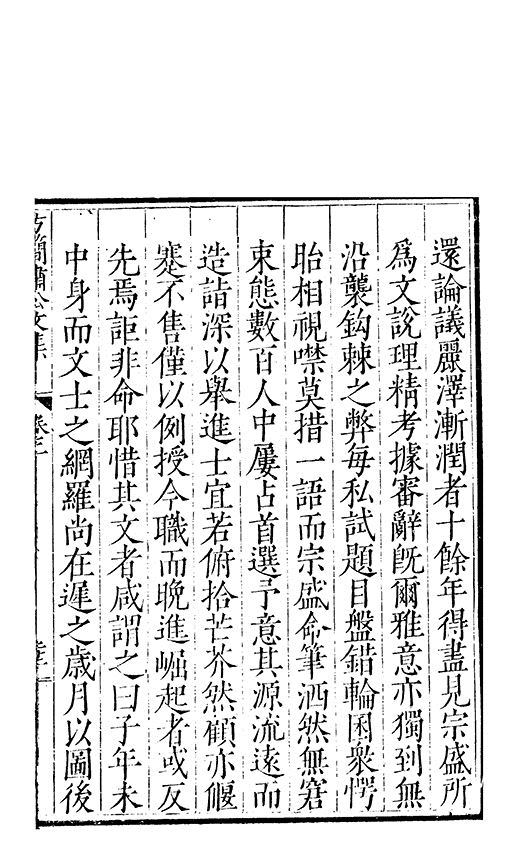 還論議麗澤漸潤者十餘年得盡見宗盛所
爲文說理精考據審辭旣爾雅意亦獨到無
沿襲鈎棘之弊每私試題目盤錯輪囷衆愕
眙相視噤莫措一語而宗盛命筆洒然無窘
束態數百人中屢占首選予意其源流遠而
造詣深以舉進士宜若俯拾芒芥然顧亦偃
蹇不售僅以例授今職而晚進崛起者或反
先焉詎非命耶惜其文者咸謂之曰子年未
中身而文士之網羅尚在遲之歲月以圖後
方簡肅公文集
卷三